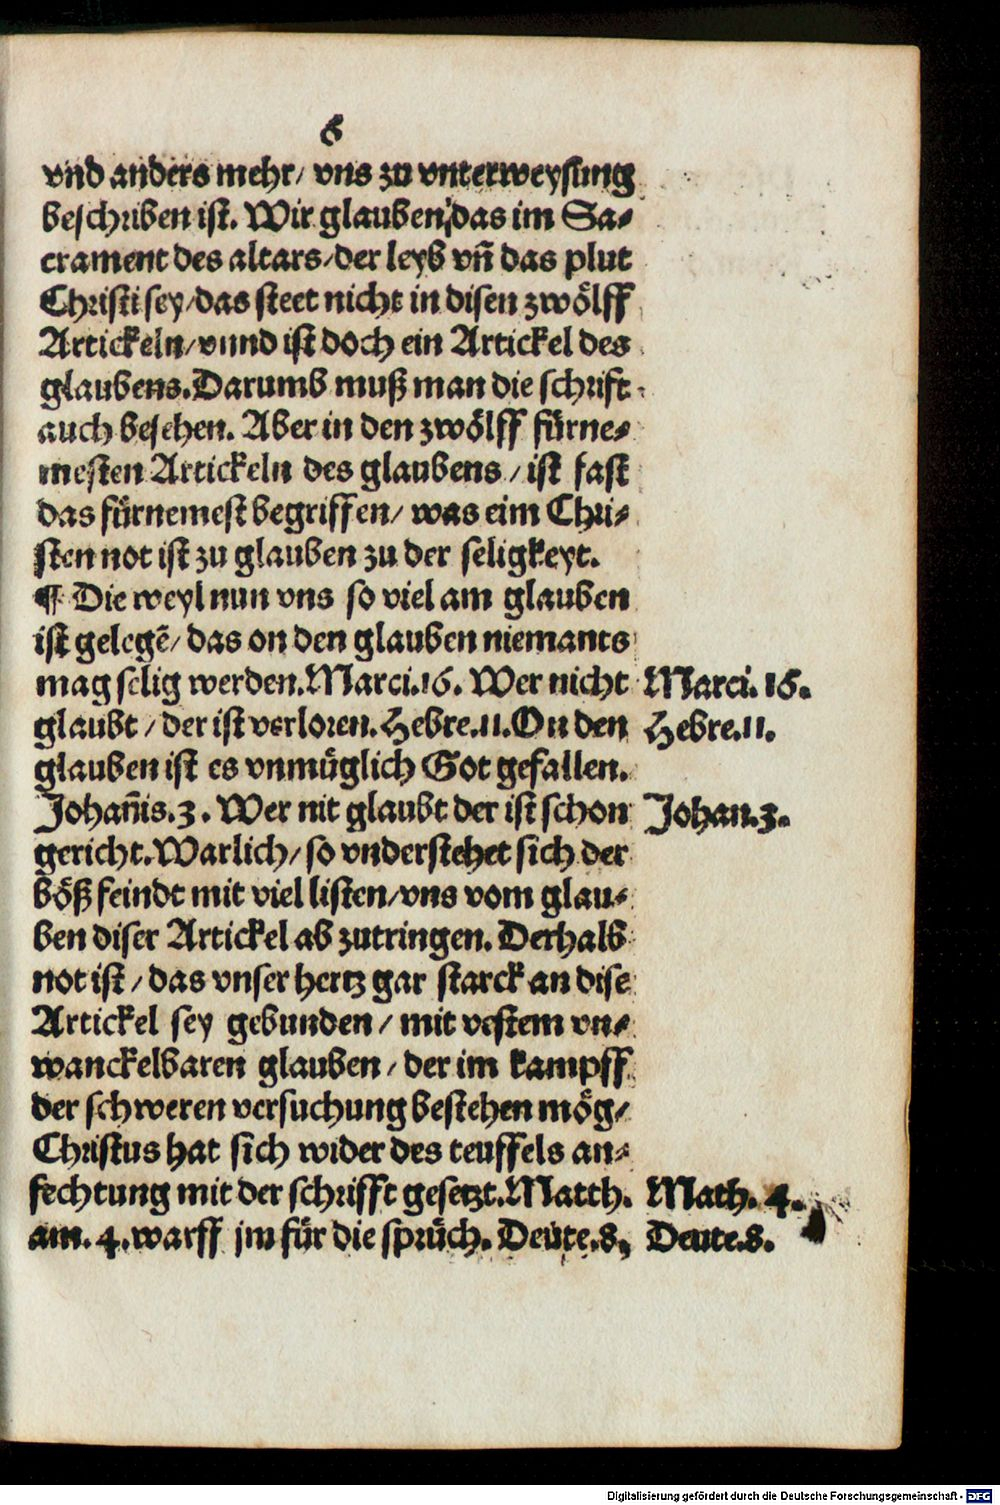 6
vnd anders mehr/ vns zu vnterweysung
beschriben ist. Wir glauben/ das im Sa⸗
crament des altars/ der leyb vñ das plut
Christi sey/ das steet nicht in disen zwölff
Artickeln/ vnnd ist doch ein Artickel des
glaubens. Darumb muß man die schrift
auch besehen. Aber in den zwölff fürne⸗
mesten Artickeln des glaubens/ ist fast
das fürnemest begriffen/ was eim Chri⸗
sten not ist zu glauben zu der seligkeyt.
¶ Die weyl nun vns so viel am glauben
ist gelegẽ/ das on den glauben niemants
mag selig werden. Marci. 16. Wer nicht
Marci. 16.
glaubt/ der ist verloren. Hebre. 11. On den
Hebre. 11.
glauben ist es vnmüglich Got gefallen.
Johañis. 3. Wer nit glaubt der ist schon
Johan. 3.
gericht. Warlich/ so vnderstehet sich der
böß feindt mit viel listen/ vns vom glau⸗
ben diser Artickel ab zutringen. Derhalb
not ist/ das vnser hertz gar starck an dise
Artickel sey gebunden/ mit vestem vn⸗
wanckelbaren glauben/ der im kampff
der schweren versuchung bestehen mög/
Christus hat sich wider des teuffels an⸗
fechtung mit der schrifft gesetzt. Matth.
Math. 4.
am. 4. warff jm für die sprüch. Deute. 8,
Deute. 8.
Digitalisierung gefördert durch die Deutsche Forschungsgemeinschaft - DFG